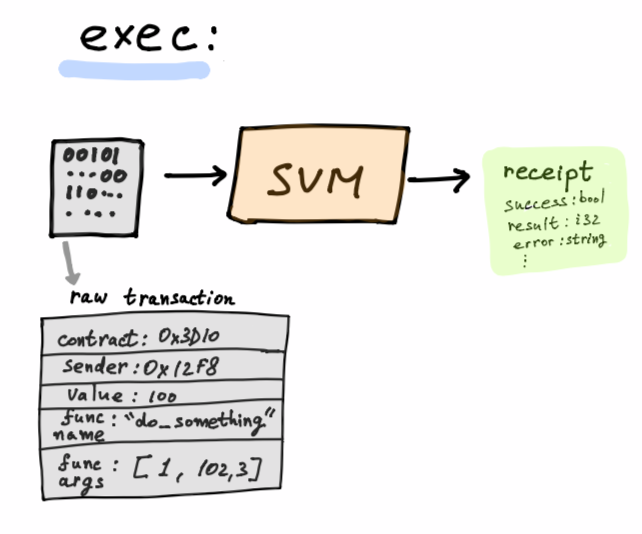 exec:
00101
...00
110...
....
SVM
receipt
success:bool
result: i32
error:string
⋮
raw transaction
contract: 0x3D10
sender: 0x12F8
value: 100
func name: "do_something"
func args: [1, 102, 3]